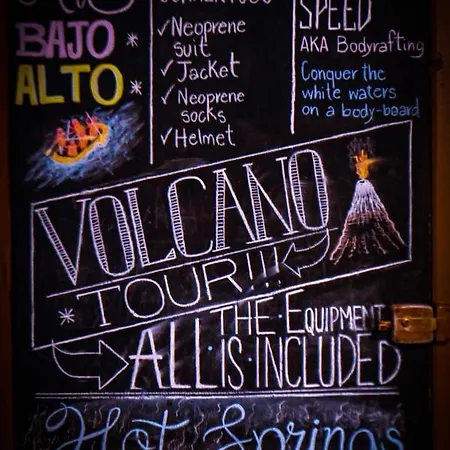 BAJO *
ALTO *
✓ Neoprene
suit
✓ Jacket
✓ Neoprene
socks
✓ Helmet
SPEED
AKA Bodyrafting
Conquer the
white waters
on a body-board
VOLCANO
* TOUR!!!
THE·EQUIPMENT
ALL·IS·INCLUDED
Hot Springs